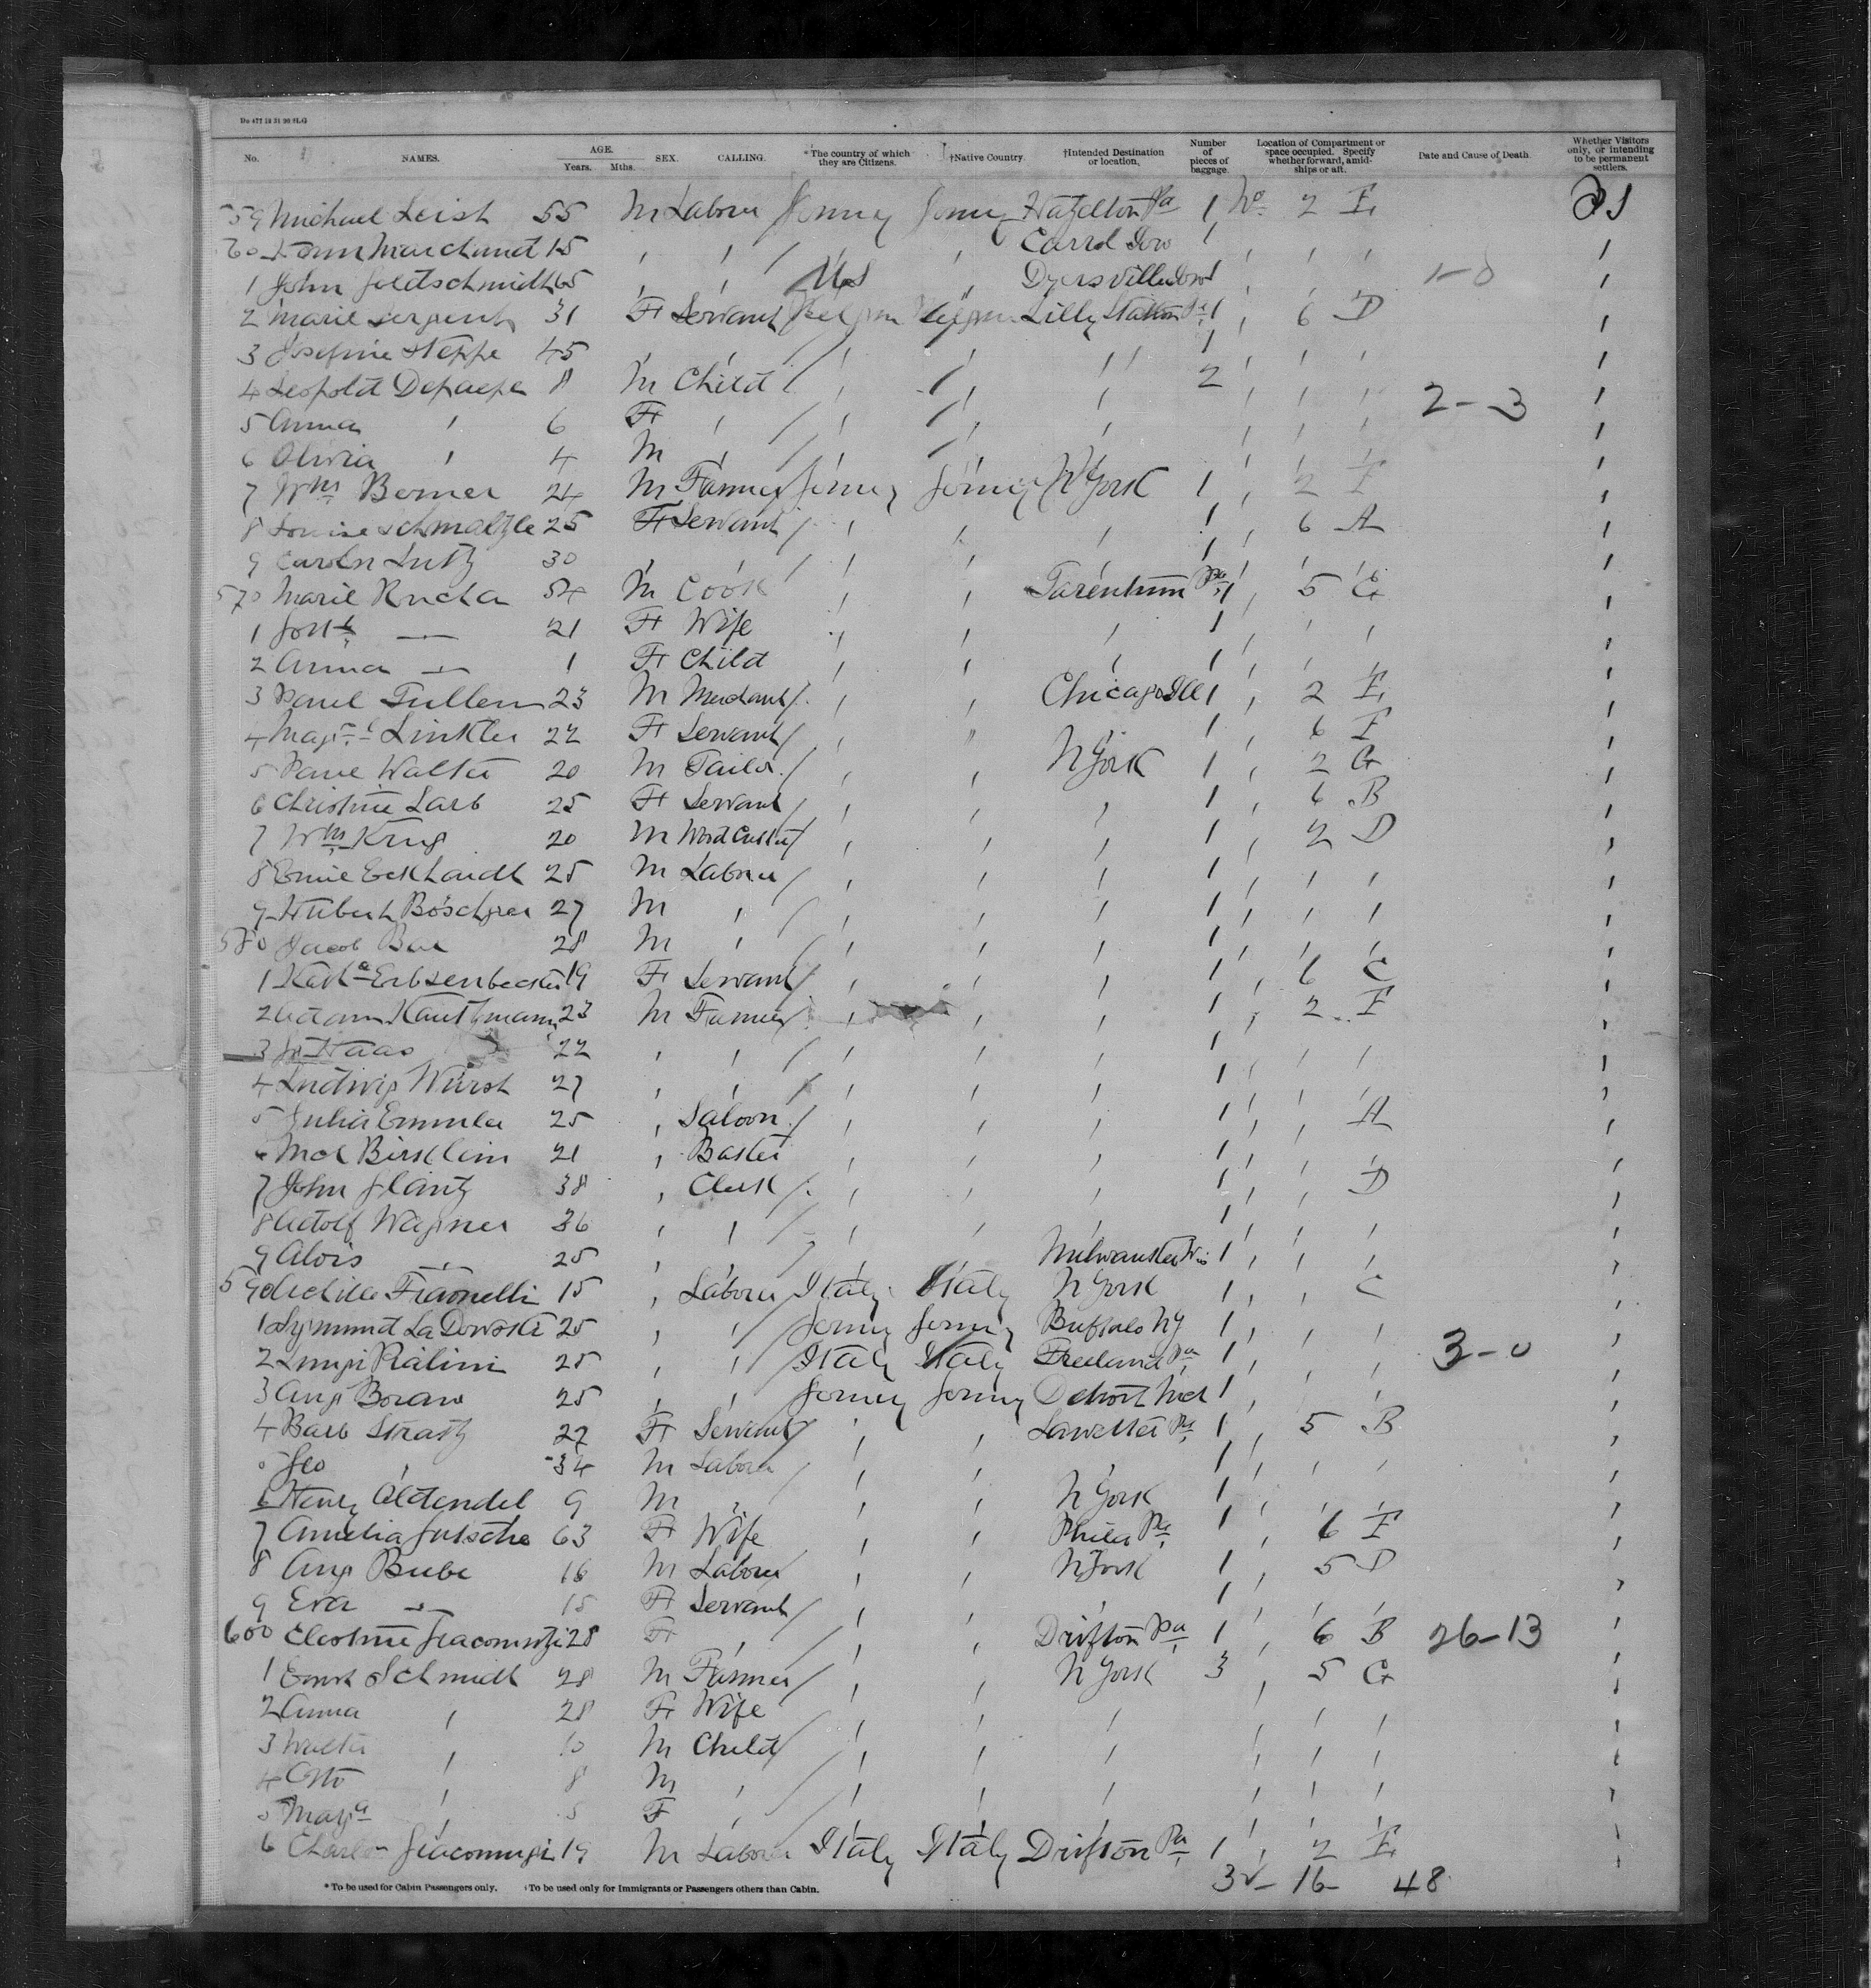 No. NAMES. AGE. Years. Mths. SEX. CALLING. *The country of which they are Citizens. †Native Country. †Intended Destination or location. Number of pieces of baggage. Location of Compartment or space occupied. Specify whether forward, amidships or aft. Date and Cause of Death. Whether Visitors only, or intending to be permanent settlers.
559 Michael Leist 55 M Labour Germy Germy Hazelton Pa 1 No 2 E
60 Marchand 15 ' ' ' ' Carrol Iow 1 ' ' '
1 John Goldtschmidt 65 ' ' U.S ' Dyersville Iow 1 ' ' ' 1-0
2 Marie Serpent 31 F Servant Belgm Belgm Lilly Station Pa 1 ' 6 D
3 Josefine Steppe 45 ' ' ' ' ' 1 ' ' '
4 Leopold Depaepe 8 M Child ' ' ' 2 ' ' '
5 Anna ' 6 F ' ' ' ' ' ' ' 2-3
6 Olivia ' 4 M ' ' ' ' ' ' '
7 Wm Berner 24 M Farmer Germy Germy N York 1 ' 2 F
8 Louise Schmaltzle 25 F Servant ' ' ' 1 ' 6 A
9 Caroln Lutz 30 ' ' ' ' ' 1 ' ' '
570 Marie Rucka 54 M Cook ' ' Tarentum Pa 1 ' 5 G
1 — 21 F Wife ' ' ' 1 ' ' '
2 Anna — 1 F Child ' ' ' 1 ' ' '
3 Paul Tullen 23 M Merchant ' ' Chicago Ill 1 ' 2 E
4 Linkler 22 F Servant ' " ' 1 ' 6 F
5 Paul Walter 20 M Tailor ' ' N York 1 ' 2 G
6 Christine Larb 25 F Servant ' ' ' 1 ' 6 B
7 Wm Krug 20 M Wood Cutter ' ' ' 1 ' 2 D
8 Emil Eckhardt 25 M Labour ' ' ' 1 ' ' '
9 Hubert 27 M ' ' ' ' 1 ' ' '
580 Jacob 28 M ' ' ' ' 1 ' ' '
1 Kath Erbsenbecker 19 F Servant ' ' ' 1 ' 6 C
2 Adam Kauthmann 23 M Farmer ' ' ' 1 ' 2 F
3 Haas 22 ' ' ' ' ' 1 ' ' '
4 Ludwig Würst 27 ' ' ' ' ' 1 ' ' '
5 Julia 25 ' Saloon ' ' ' 1 ' ' A
6 21 ' ' ' ' 1 ' ' '
7 John Glantz 38 ' Clerk ' ' ' 1 ' ' D
8 Adolf Wagner 36 ' ' ' ' ' 1 ' ' '
9 Alois — 25 ' ' ' ' Milwaukee Wis 1 ' ' '
590 15 ' Labour Italy Italy N York 1 ' ' C
1 Symund La Dowski 25 ' ' Germy Germy Buffalo NY 1 ' ' '
2 Luigi Rialini 25 ' ' Italy Italy Freeland Pa 1 ' ' ' 3-0
3 Aug Boraw 25 ' ' Germy Germy Detroit Mch 1 ' ' '
4 Barb Stratz 27 F Servant ' ' Pa 1 ' 5 B
5 Geo ' 34 M Labour ' ' ' 1 ' ' '
6 Henry Aldendel 9 M ' ' ' N York 1 ' ' '
7 Amelia Gutsche 63 F Wife ' ' Phila Pa 1 ' 6 F
8 Aug Bube 16 M Labour ' ' N York 1 ' 5 D
9 Eva — 15 F Servant ' ' ' 1 ' ' '
600 28 F ' ' ' Drifton Pa 1 ' 6 B 26-13
1 Ernst Schmidt 28 M Farmer ' ' N York 3 ' 5 G
2 Anna ' 28 F Wife ' ' ' ' ' '
3 Walter ' 10 M Child ' ' ' ' ' '
4 Otto ' 8 M ' ' ' ' ' ' '
5 ' 5 F ' ' ' ' ' ' '
6 19 M Labour Italy Italy Drifton Pa 1 ' 2 E
32- 16- 48
* To be used for Cabin Passengers only. †To be used only for Immigrants or Passengers others than Cabin.